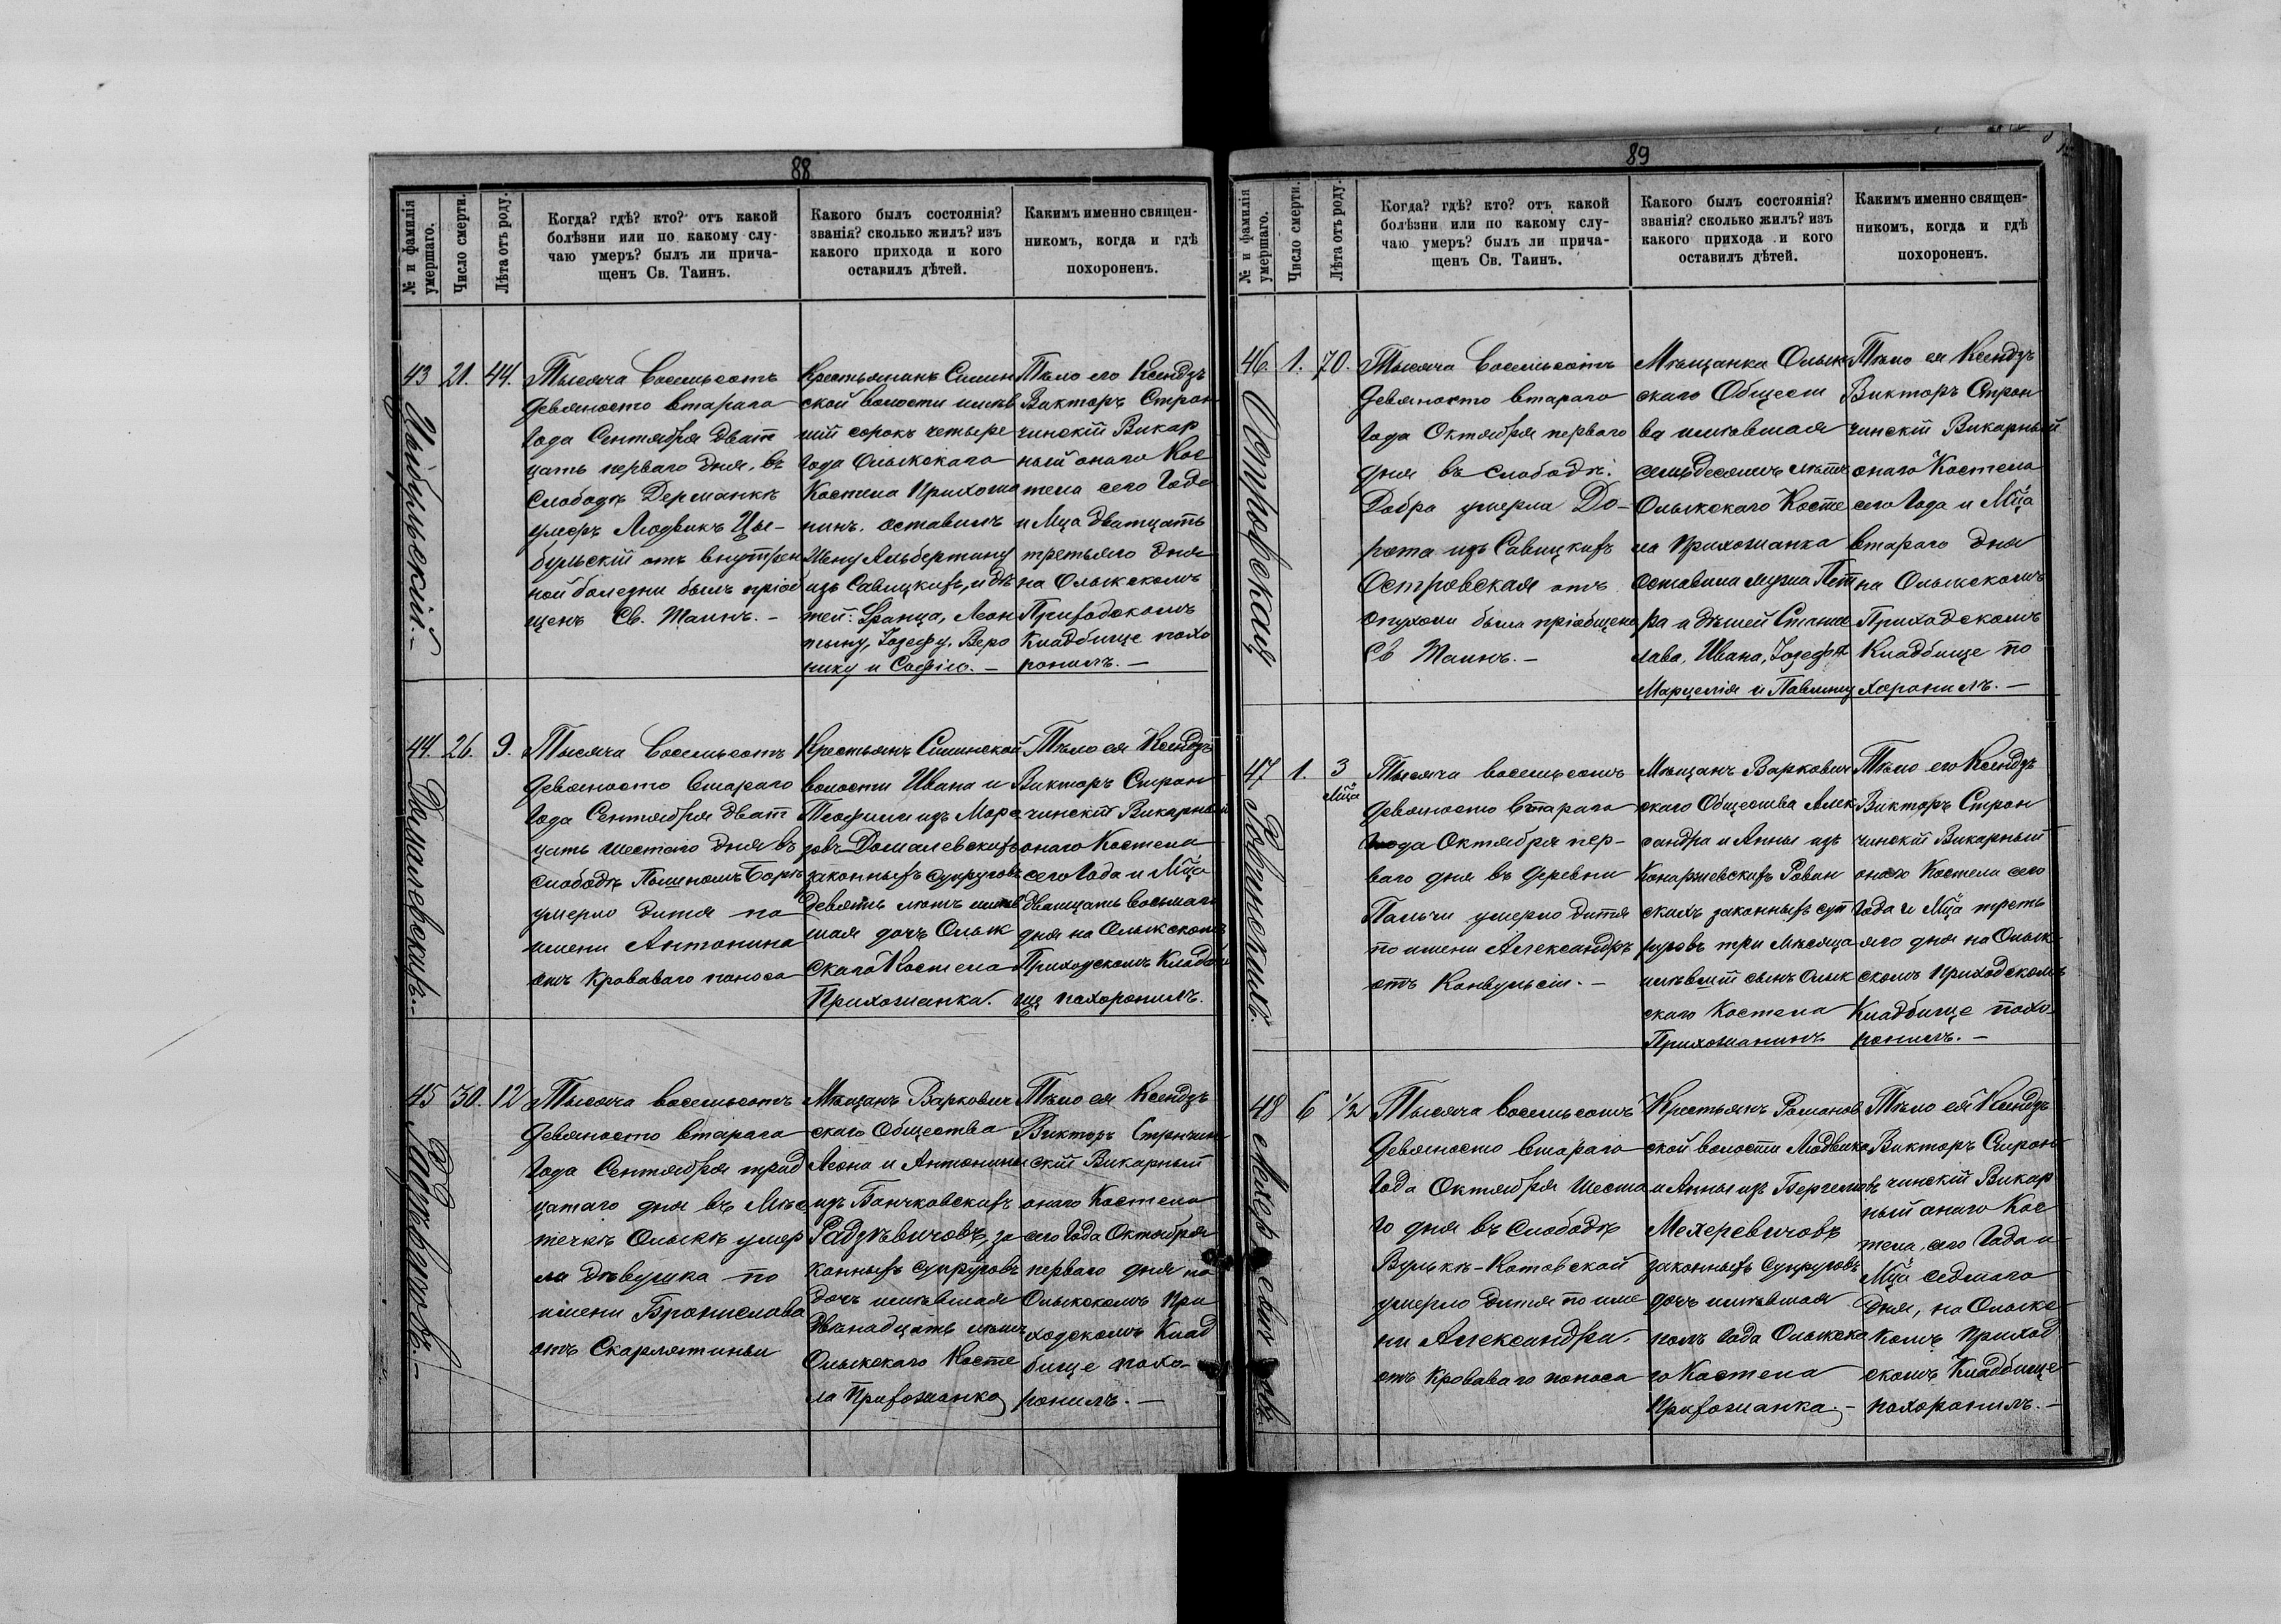 88
№ и фамилія умершаго.
Число смерти.
Лѣта отъ роду.
Когда? гдѣ? кто? отъ какой
болѣзни или по какому слу-
чаю умеръ? былъ ли прича-
щенъ Св. Таинъ.
Какого былъ состоянія?
званія? сколько жилъ? изъ
какого прихода и кого
оставилъ дѣтей.
Какимъ именно священ-
никомъ, когда и гдѣ
похороненъ.
43
Цыбульскій.-
21.
44.
Тысяча восемьсотъ
девяносто втараго
Года Сентября дват
цать перваго дня, въ
слободѣ Дерманкѣ
умеръ Людвикъ Цы-
бульскій отъ внутрен
ной болезни былъ пріоб
щенъ Св. Таинъ. -
Крестьянинъ Силин
ской волости имѣв
шій сорокъ четыре
Года Олыкскаго
Костела Прихожа
нинъ. оставилъ
Жену Альбертину
изъ Савицкихъ, и дѣ
тей: Франца, Леон
тыну, Іозефу, Веро
нику и Софію. -
Тѣло его Ксендзъ
Викторъ Строн
чинскій Викар
ный онаго Кос
тела сего Года
и Мца дватцать
третьяго дня
на Олыкскомъ
Приходскомъ
Кладбище похо
ронилъ. -
44.
Домалевскихъ.-
26.
9.
Тысяча восемьсотъ
девяносто втараго
Года Сентября дват
цать шестаго дня въ
слободѣ Полиномъ Борѣ
умерло дитя по
имени Антонина
отъ Кроваваго поноса
Крестьянъ Силинской
волости Ивана и
Теофили изъ Моро
зовъ Домалевскихъ
законныхъ супруговъ
девять лѣтъ имѣв
шая дочь Олык
скаго Костела
Прихожанка.
Тѣло ея Ксендзъ
Викторъ Строн
чинскій Викарный
онаго Костела
сего Года и Мца
двацать восьмаго
дня на Олыкскомъ
Приходскомъ Кладби
ще похоронилъ.
45
Радзѣвичовъ.-
30.
12
Тысяча восемьсотъ
девяносто втараго
Года Сентября трид
цатаго дня въ Мѣс
течкѣ Олыкѣ умер
ла дѣвушка по
имени Брониславa
отъ Скарлятины
Мѣщанъ Варкович
скаго Общества
Леона и Антонины
изъ Банчковскихъ
Радзѣвичовъ, за
конныхъ супруговъ
дочь имѣвшая
двѣнадцать лѣтъ
Олыкскаго Косте
ла Прихожанка
Тѣло ея Ксендзъ
Викторъ Стрончин
скій Викарный
онаго Костела
сего Года Октября
перваго дня на
Олыкскомъ При
ходскомъ Клад
бище похо-
ронилъ. -
89
№ и фамилія умершаго.
Число смерти.
Лѣта отъ роду.
Когда? гдѣ? кто? отъ какой
болѣзни или по какому слу-
чаю умеръ? былъ ли прича-
щенъ Св. Таинъ.
Какого былъ состоянія?
званія? сколько жилъ? изъ
какого прихода и кого
оставилъ дѣтей.
Какимъ именно священ-
никомъ, когда и гдѣ
похороненъ.
46.
Островская
1.
70.
Тысяча восемьсотъ
девяносто втараго
Года Октября перваго
дня въ слободѣ
Добра умерла До-
рота изъ Савицкихъ
Островская отъ
опухоли была пріобщена
Св Таинъ. -
Мѣщанка Олык
скаго Общест
ва имѣвшая
семьдесятъ лѣтъ
Олыкскаго Косте
ла Прихожанка
оставила мужа Пет
ра и дѣтей Станис
лава, Ивана, Іозефа
Марцелія и Павлину
Тѣло ея Ксендзъ
Викторъ Строн
чинскій Викарный
онаго Костела
сего Года и Мца
втараго дня
на Олыкскомъ
Приходскомъ
Кладбище по
хоронилъ. -
47
Ровинскихъ.
1.
3
Мца
Тысяча восемьсотъ
девяносто втараго
Года Октября пер-
ваго дня въ деревни
Пальчи умерло дитя
по имени Александръ
отъ Конвульсіи. -
Мѣщанъ Варкович
скаго Общества Алек
сандра и Анны изъ
Конаржевскихъ Ровин
скихъ законныхъ суп
руговъ три мѣсяца
имѣвшій сынъ Олык
скаго Костела
Прихожанинъ
Тѣло его Ксендзъ
Викторъ Строн
чинскій Викарный
онаго Костела сего
Года и Мца треть
яго дня на Олык
скомъ Приходскомъ
Кладбище похо
ронилъ. -
48
6
1/2
Тысяча восемьсотъ
девяносто втараго
Года Октября шеста
го дня въ слободѣ
Вулькѣ-Котовской
умерло дитя по име
ни Александра.
отъ Кроваваго поноса
Крестьянъ Романов
ской волости Людвика
и Анны изъ Бергеловъ
Мехеревичовъ
законныхъ супруговъ
дочь имѣвшая
полъ Года Олыкска
го Костела
Прихожанка. -
Тѣло ея Ксендзъ
Викторъ Строн
чинскій Викар
ный онаго Кос
тела, сего Года и
Мца седмаго
дня, на Олыкс
комъ Приход
скомъ Кладбище
похоронилъ. -